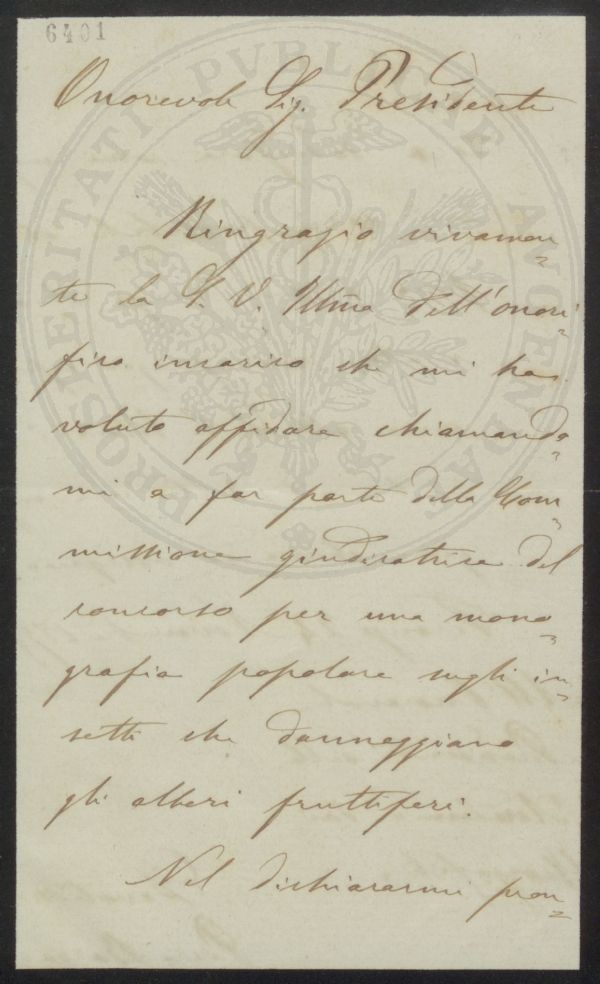 6401
PROSPERITATI PVBLICAE AVGENDAE
Onorevole Sig. Presidente
Ringrazio vivamen=
te la S. V. Illma dell'onori=
fico incarico che mi ha
voluto affidare chiamando=
mi a far parte della Com=
missione giudicatrice del
concorso per una mono=
grafia popolare sugli in=
setti che danneggiano
gli alberi fruttiferi.
Nel dichiararmi pron=